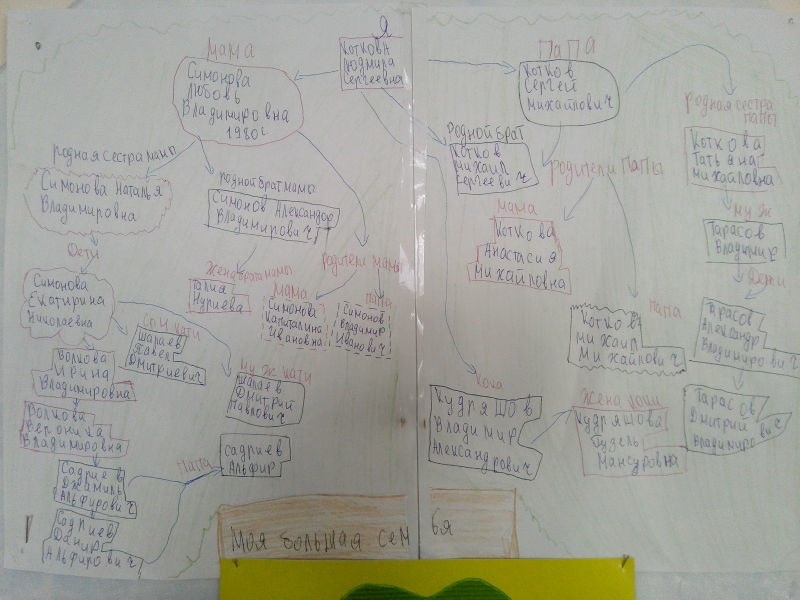 Я
Коткова
Людмила
Сергеевна
мама
Симонова
Любовь
Владимировна
1980г
ПАПА
Котков
Сергей
Михайлович
родная сестра мамы
Симонова Наталья
Владимировна
родной брат мамы
Симонов Александр
Владимирович
Жена брата мамы
Талия
Нуриева
родители мамы
мама
Симонова
Капиталина
Ивановна
папа
Симонов
Владимир
Иванович
Дети
Симонова
Екатирина
Николаевна
Сын Кати
Шапаев
Павел
Дмитриевич
муж Кати
Шапаев
Дмитрий
Павлович
Волкова
Ирина
Владимировна
Волкова
Вероника
Владимировна
Садриев
Джамиль
Альфирович
Садриев
Данир
Альфирович
Папа
Садриев
Альфир
Родной брат
Котков
Михаил
Сергеевич
родители Папы
мама
Коткова
Анастасия
Михайловна
папа
Котков
Михаил
Михайлович
родная сестра
папы
Коткова
Татьяна
Михайловна
муж
Тарасов
Владимир
Дети
Тарасов
Александр
Владимирович
Тарасов
Дмитрий
Владимирович
Кока
Кудряшов
Владимир
Александрович
Жена Коки
Кудряшова
Гузель
Мансуровна
Моя большая семья